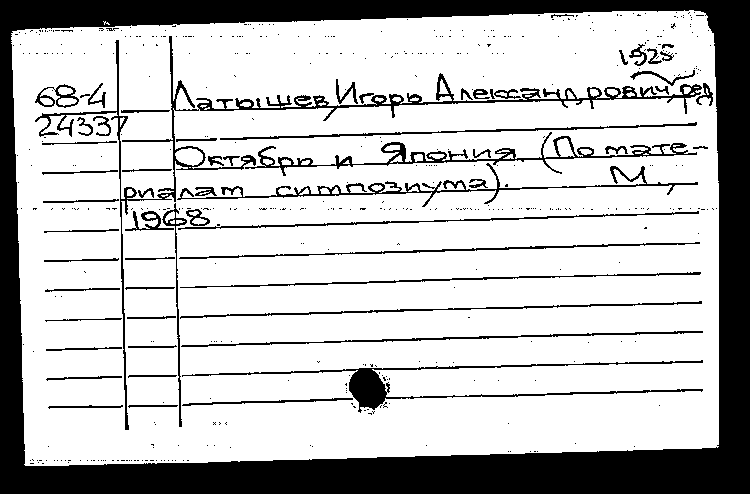 1925
68-4 Латышев, Игорь Александрович, ред.
24337
Октябрь и Япония. (По мате-
риалам симпозиума). М.,
1968.